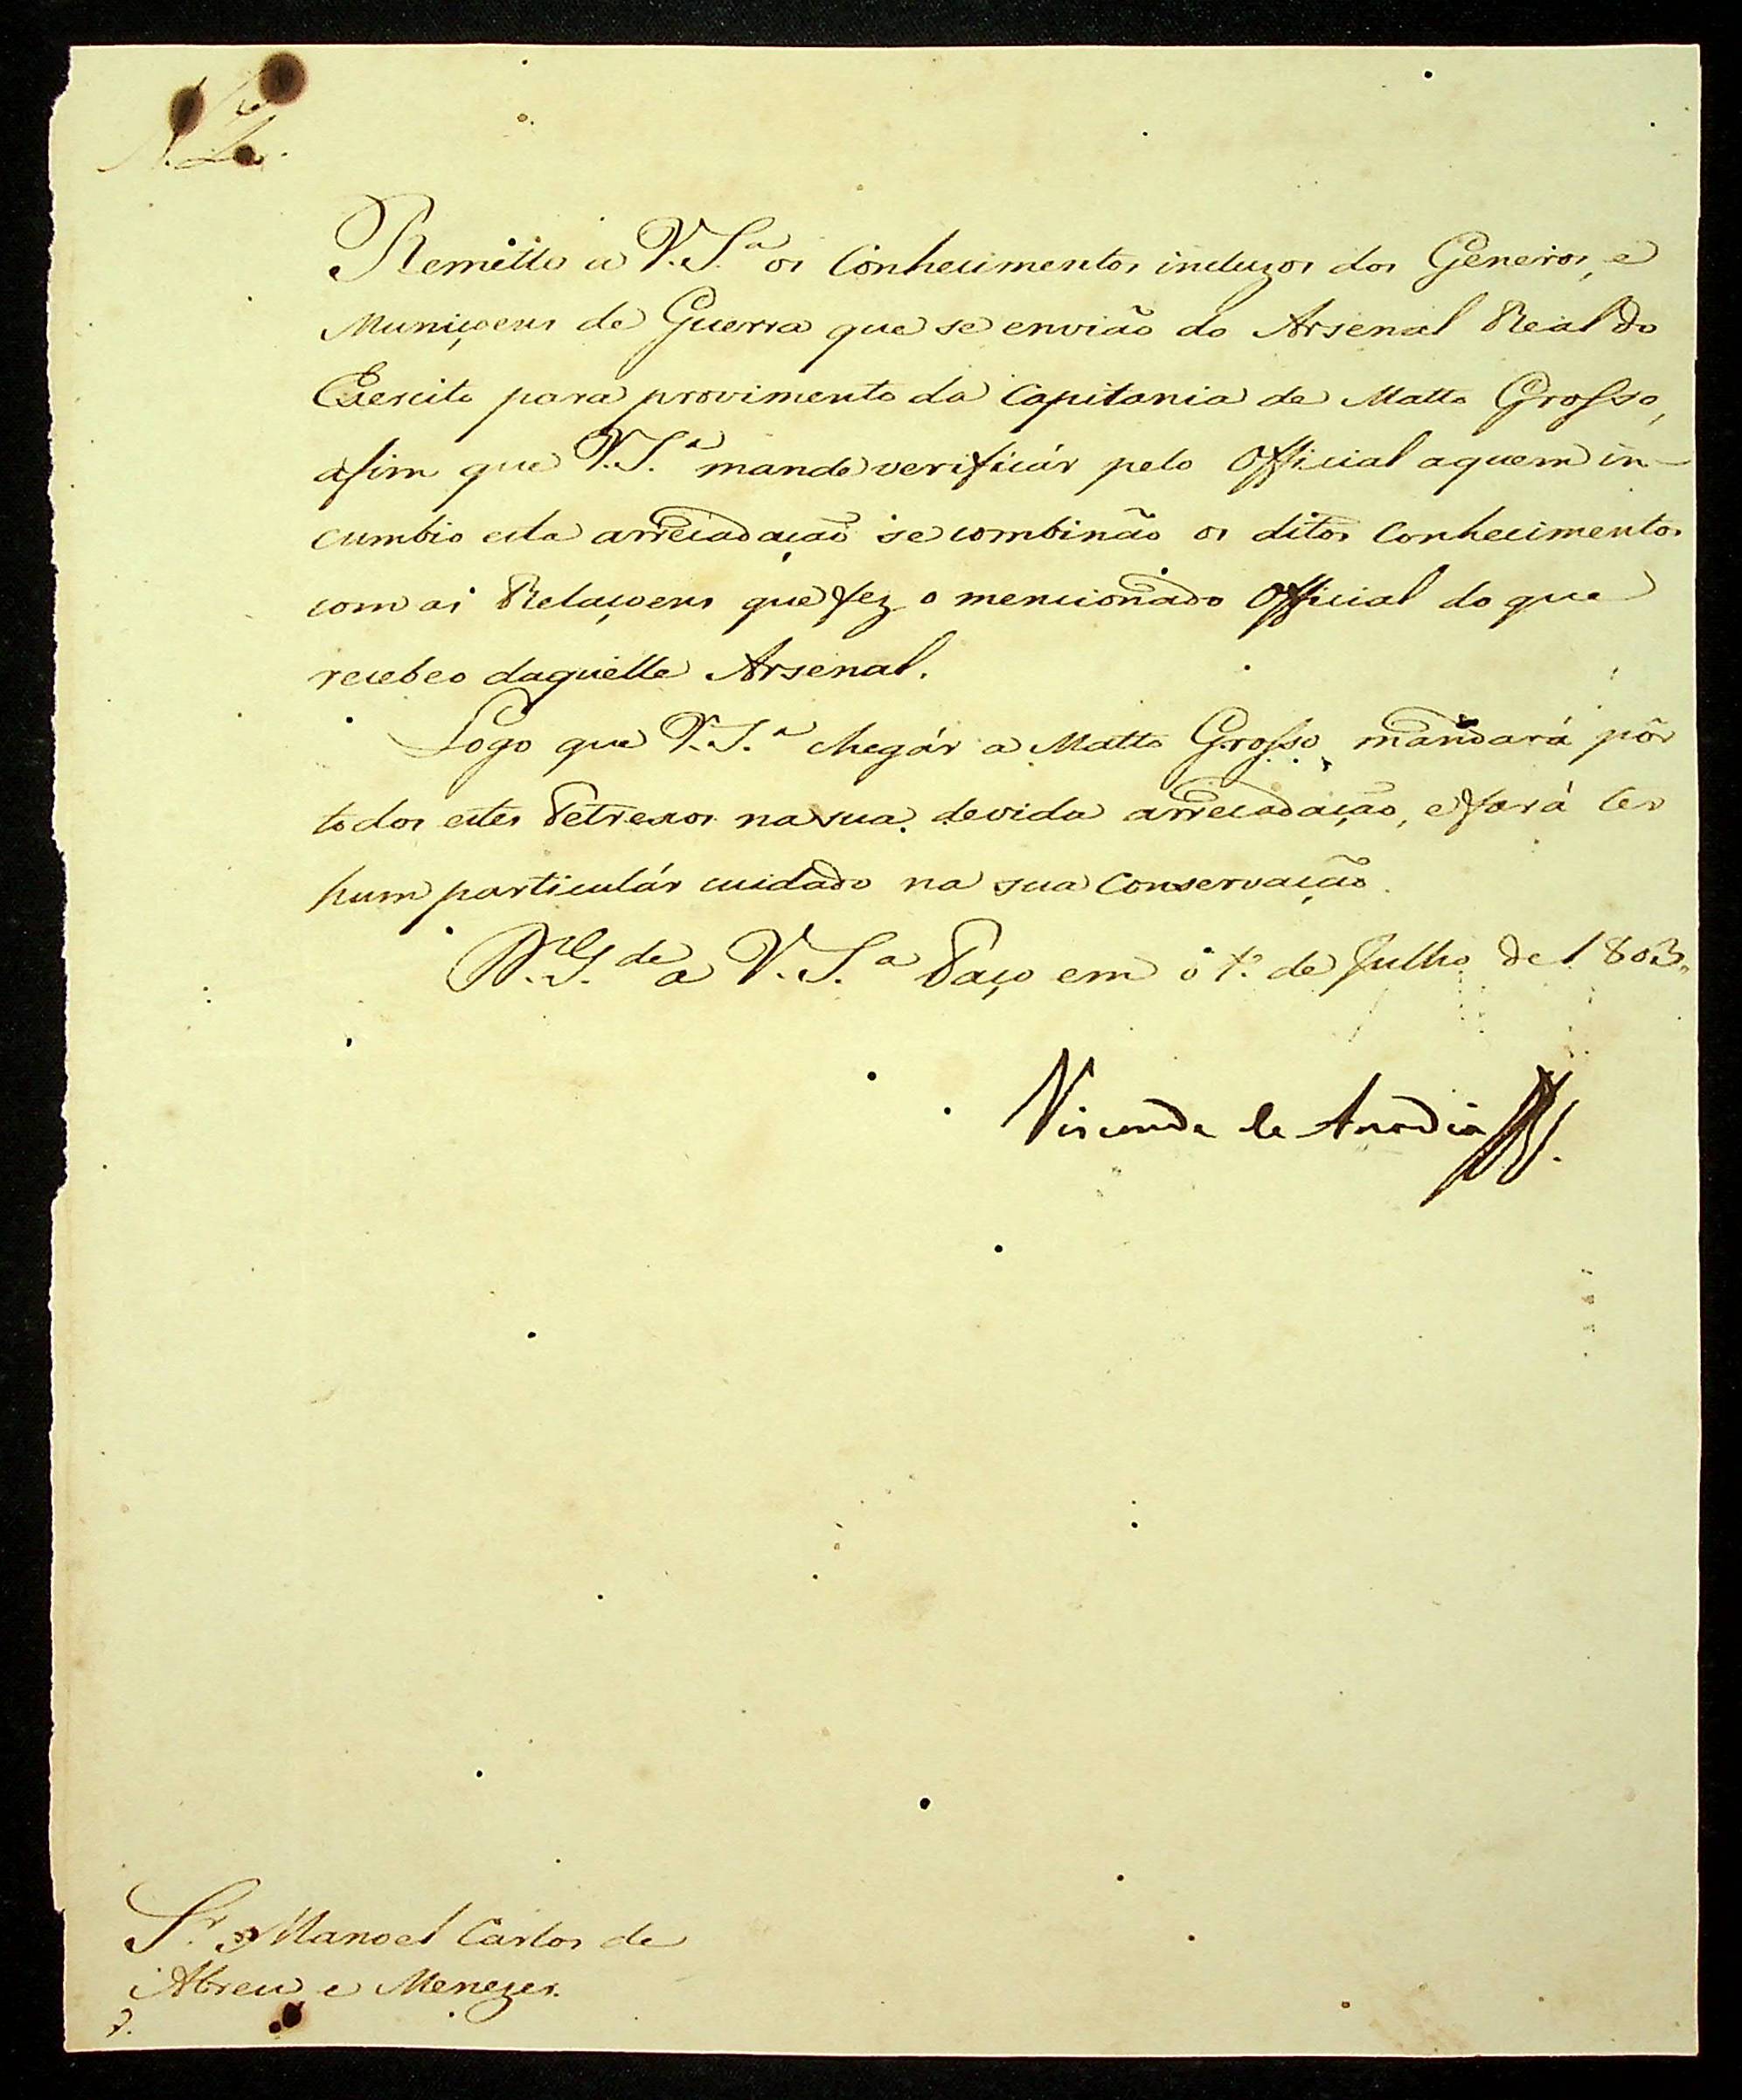 N. 2.
Remetto a V. S.ª os Conhecimentos incluzos dos Generos, e
Muniçoens de Guerra que se envião do Arsenal Real do
Exercito para provimento da Capitania de Matto Grosso,
afim que V. S.ª mande verificár pelo Official aquem in-
cumbio esta arrecadação se combinão os ditos Conhecimentos
com as Relaçoens que fez o mencionado Official do que
recebeo daquelle Arsenal.
Logo que V. S.ª chegár a Matto Grosso, mandará pôr
todos estes Petrexos na sua devida arrecadação, e fará ter
hum particulár cuidado na sua Conservação.
D.s G.de a V. S.ª Paço em o 1.º de Julho de 1803.
Visconde de Anadia
S.r Manoel Carlos de
Abreu e Menezes.